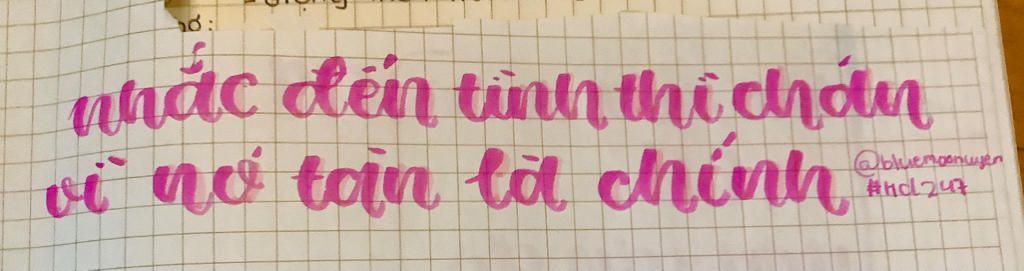 nhắc đến tình thì chán
vì nó toàn là chính
@bluemoonuyen
#nd247